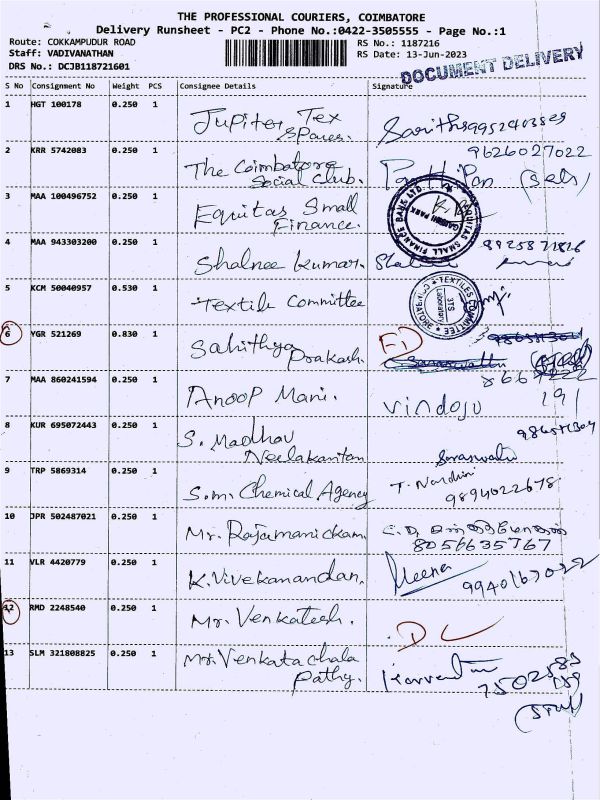 THE PROFESSIONAL COURIERS, COIMBATORE
Delivery Runsheet - PC2 - Phone No.:0422-3505555 - Page No.:1
Route: COKKAMPUDUR ROAD
Staff: VADIVANATHAN
DRS No.: DCJB118721601
RS No.: 1187216
RS Date: 13-Jun-2023
DOCUMENT DELIVERY
S No Consignment No Weight PCS Consignee Details Signature
1 HGT 100178 0.250 1 Jupiter Tex Spares.
2 KRR 5742083 0.250 1 The Coimbatore Social Club. 9626027022
3 MAA 100496752 0.250 1 Equitas Small Finance.
EQUITAS SMALL FINANCE BANK LTD.
4 MAA 943303200 0.250 1 Shalnee Kumar.
5 KCM 50040957 0.530 1 Textile Committee
TEXTILES COMMITTEE
Laboratory
COIMBATORE
6 VGR 521269 0.830 1 Sahithya Prakash.
7 MAA 860241594 0.250 1 Anoop Mani. Vindoju
8 KUR 695072443 0.250 1 S. Madhav Neelakantan Saraswathi
9 TRP 5869314 0.250 1 S.M. Chemical Agency T. Nandhini 9894022678
10 JPR 502487021 0.250 1 Mr. Rajamanickam. 8056635767
11 VLR 4420779 0.250 1 K. Vivekanandan. Meena 9940167022
12 RMD 2248540 0.250 1 Mr. Venkatesh. DL
13 SLM 321808825 0.250 1 Mr. Venkatachala Pathy. 7502583
(Staff)